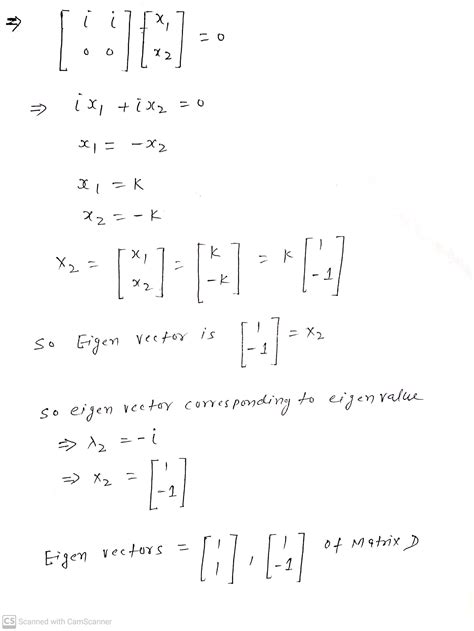 ⇒ [i i; 0 0] [x₁; x₂] = 0
⇒ ix₁ + ix₂ = 0
x₁ = -x₂
x₁ = K
x₂ = -K
X₂ = [x₁; x₂] = [K; -K] = K [1; -1]
So Eigen vector is [1; -1] = X₂
So eigen vector corresponding to eigen value
⇒ λ₂ = -i
⇒ X₂ = [1; -1]
Eigen vectors = [1; 1], [1; -1] of Matrix D
CS Scanned with CamScanner